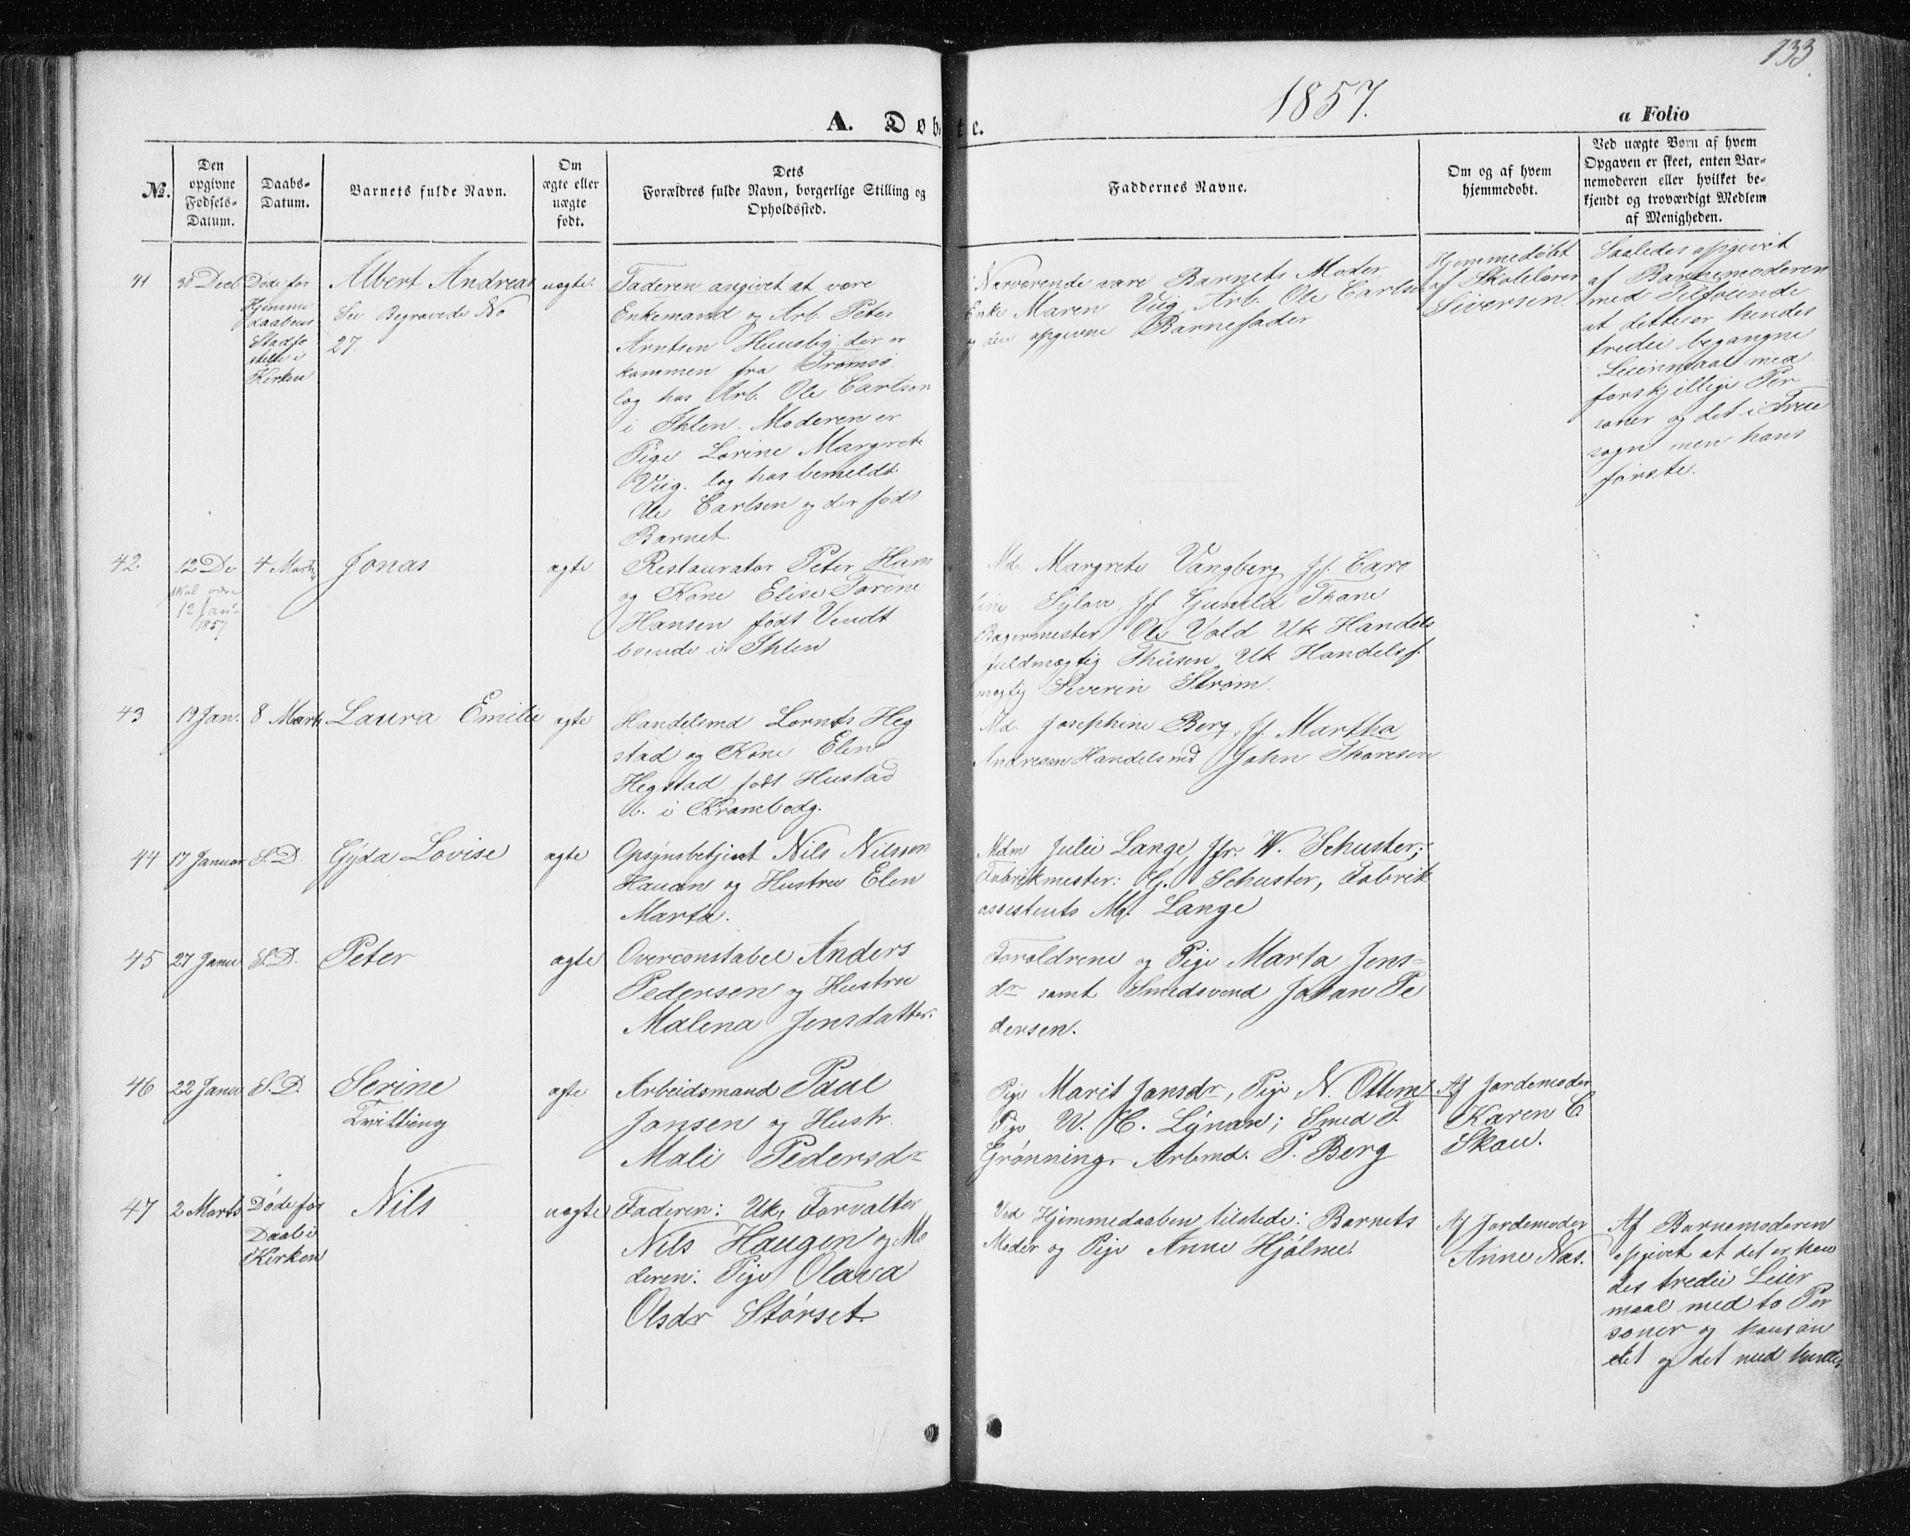 133.
1857.
A. Døbte.
a Folio
No.
Den
opgivne
Fødsels-
Datum.
Daabs-
Datum.
Barnets fulde Navn.
Om
ægte eller
uægte
født.
Dets
Forældres fulde Navn, borgerlige Stilling og
Opholdssted.
Faddernes Navne.
Om og af hvem
hjemmedøbt.
Ved uægte Børn af hvem
Opgaven er skeet, enten Bar-
nemoderen eller hvilket be-
kjendt og troværdigt Medlem
af Menigheden.
41
30 Decb
Døde før
Hjemme
daabens
Stadfæ
stelse i
Kirken
Albert Andreas
See Begravede No
27.
uægte
Faderen angivet at være
Enkemand og Arb. Peter
Arntsen Huusby der er
kommen fra Tromsø
log hos Arb. Ole Carlsen
i Ihlen. Moderen er
Pige Lorine Margrete
Viig. log hos bemeldt
Ole Carlsen og der føds
Barnet.
Nærværende vare Barnets Moder
Enke Maren Viig Arb. Ole Carlsen
og den opgivne Barnefader
Hjemmedøbt
af Skolelærer
Siversen.
Saaledes opgivet
af Barnemoderen
med Tilføiende
at dette er hendes
tredie begangne
Leiermaal med
forskjellige Per
soner og det i Frue
sogn men hans
første.
42.
12 De
skal være
12 Jan.
1857
4 Marts
Jonas
ægte
Restauratør Peter Han
og Kone Elise Tarine
Hansen født Vendt
boende i Ihlen
Md. Margrete Vangberg, Jf. Caro
line Sylow Jf Gunild Thane
Bagermester Ole Vold Uk Handels
fuldmægtig Thüsen Uk Handelsf
mægtig Severin Strøm.
43
19 Jan.
8 Marts
Laura Emilie
ægte
Handelsmd Lornts Heg
stad og Kone Elen
Hegstad født Hustad
b. i Krambodg.
Md. Josephine Berg, Jf. Martha
Andresen Handelsmd John Thoresen
44
17 Januar
S. D.
Gyda Lovise
ægte
Opsynsbetjent Nils Nilssen
Hauan og Hustru Elen
Marta.
Mdm Julie Lange, Jfr. W. Schuster;
Fabrikmester: G. Schuster, Fabrik
assistents M. Lange
45
27 Janu
S. D.
Peter
ægte
Overconstabel Anders
Pedersen og Hustru
Malena Jensdatter.
Forældrene og Pige Marta Jens-
dr samt Smedsvend Johan Pe
dersen.
46
22 Janu
S. D.
Serine
Tvilling
ægte
Arbeidsmand Paul
Jansen og Hustr.
Mali Pedersdr
Pige Marit Jonsdr, Pige N. Ottem
Pige W. H. Lynan; Smed T.
Grønning, Arbmd. P. Berg
Af Jordemoder
Karen C.
Skau.
47
2 Marts
Døde før
Daab i
Kirken
Nils
uægte
Faderen: Uk. Forvalter
Nils Haugen og Mo
deren: Pige Olava
Olsdr Størset.
Ved Hjemmedaaben tilstede: Barnets
Moder og Pige Anne Hjølme.
Af Jordemoder
Anne Næs.
Af Barnemoderen
opgivet at det er hen
des tredie Leier
maal med to Per
soner og hans an
det og det med hende